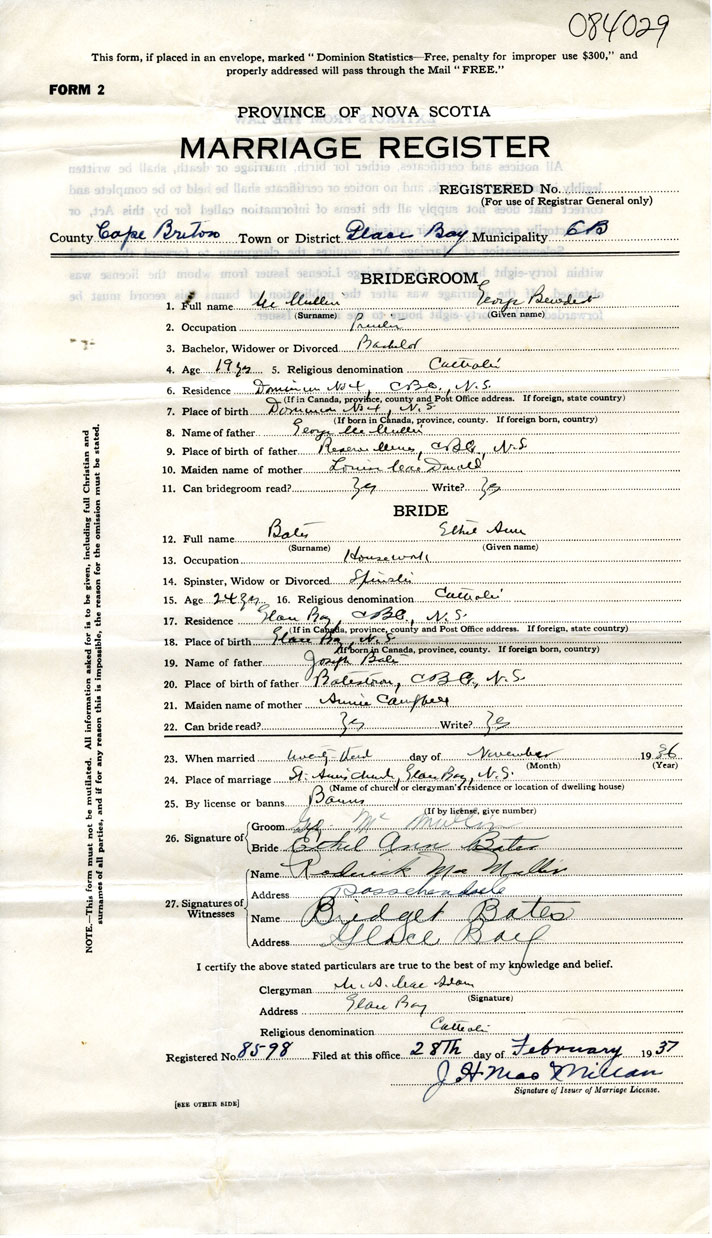 084029
This form, if placed in an envelope, marked "Dominion Statistics—Free, penalty for improper use $300," and
properly addressed will pass through the Mail "FREE."
FORM 2
PROVINCE OF NOVA SCOTIA
MARRIAGE REGISTER
REGISTERED No.
(For use of Registrar General only)
County Cape Breton Town or District Glace Bay Municipality CB
BRIDEGROOM
1. Full name Mc Mullin George Benedict
(Surname) (Given name)
2. Occupation
3. Bachelor, Widower or Divorced Bachelor
4. Age 19 yrs 5. Religious denomination Catholic
6. Residence Dominion No 4, C.B.Co., N.S.
(If in Canada, province, county and Post Office address. If foreign, state country)
7. Place of birth Dominion No 4, N.S.
(If born in Canada, province, county. If foreign born, country)
8. Name of father George Mc Mullin
9. Place of birth of father Reserve Mines, C.B.Co., N.S
10. Maiden name of mother Louise MacDonald
11. Can bridegroom read? Yes Write? Yes
BRIDE
12. Full name Bates Ethel Ann
(Surname) (Given name)
13. Occupation Housework
14. Spinster, Widow or Divorced Spinster
15. Age 24 yrs 16. Religious denomination Catholic
17. Residence Glace Bay, C.B.Co., N.S.
(If in Canada, province, county and Post Office address. If foreign, state country)
18. Place of birth Glace Bay, N.S.
(If born in Canada, province, county. If foreign born, country)
19. Name of father Joseph Bates
20. Place of birth of father Batestown, C.B.Co., N.S.
21. Maiden name of mother Annie Campbell
22. Can bride read? Yes Write? Yes
23. When married twenty third day of November 1936
(Month) (Year)
24. Place of marriage St. Ann's church, Glace Bay, N.S.
(Name of church or clergyman's residence or location of dwelling house)
25. By license or banns Banns
(If by license, give number)
26. Signature of Groom Geo. Mc Mullin
Bride Ethel Ann Bates
27. Signatures of Witnesses Name Roderick Mc Mullin
Address Passchendaele
Name Bridget Bates
Address Glace Bay
I certify the above stated particulars are true to the best of my knowledge and belief.
Clergyman M. A. MacAdam
(Signature)
Address Glace Bay
Religious denomination Catholic
Registered No. 8598 Filed at this office 28th day of February 1937
J H MacMillan
Signature of Issuer of Marriage License.
[SEE OTHER SIDE]
NOTE.—This form must not be mutilated. All information asked for is to be given, including full Christian and
surnames of all parties, and if for any reason this is impossible, the reason for the omission must be stated.